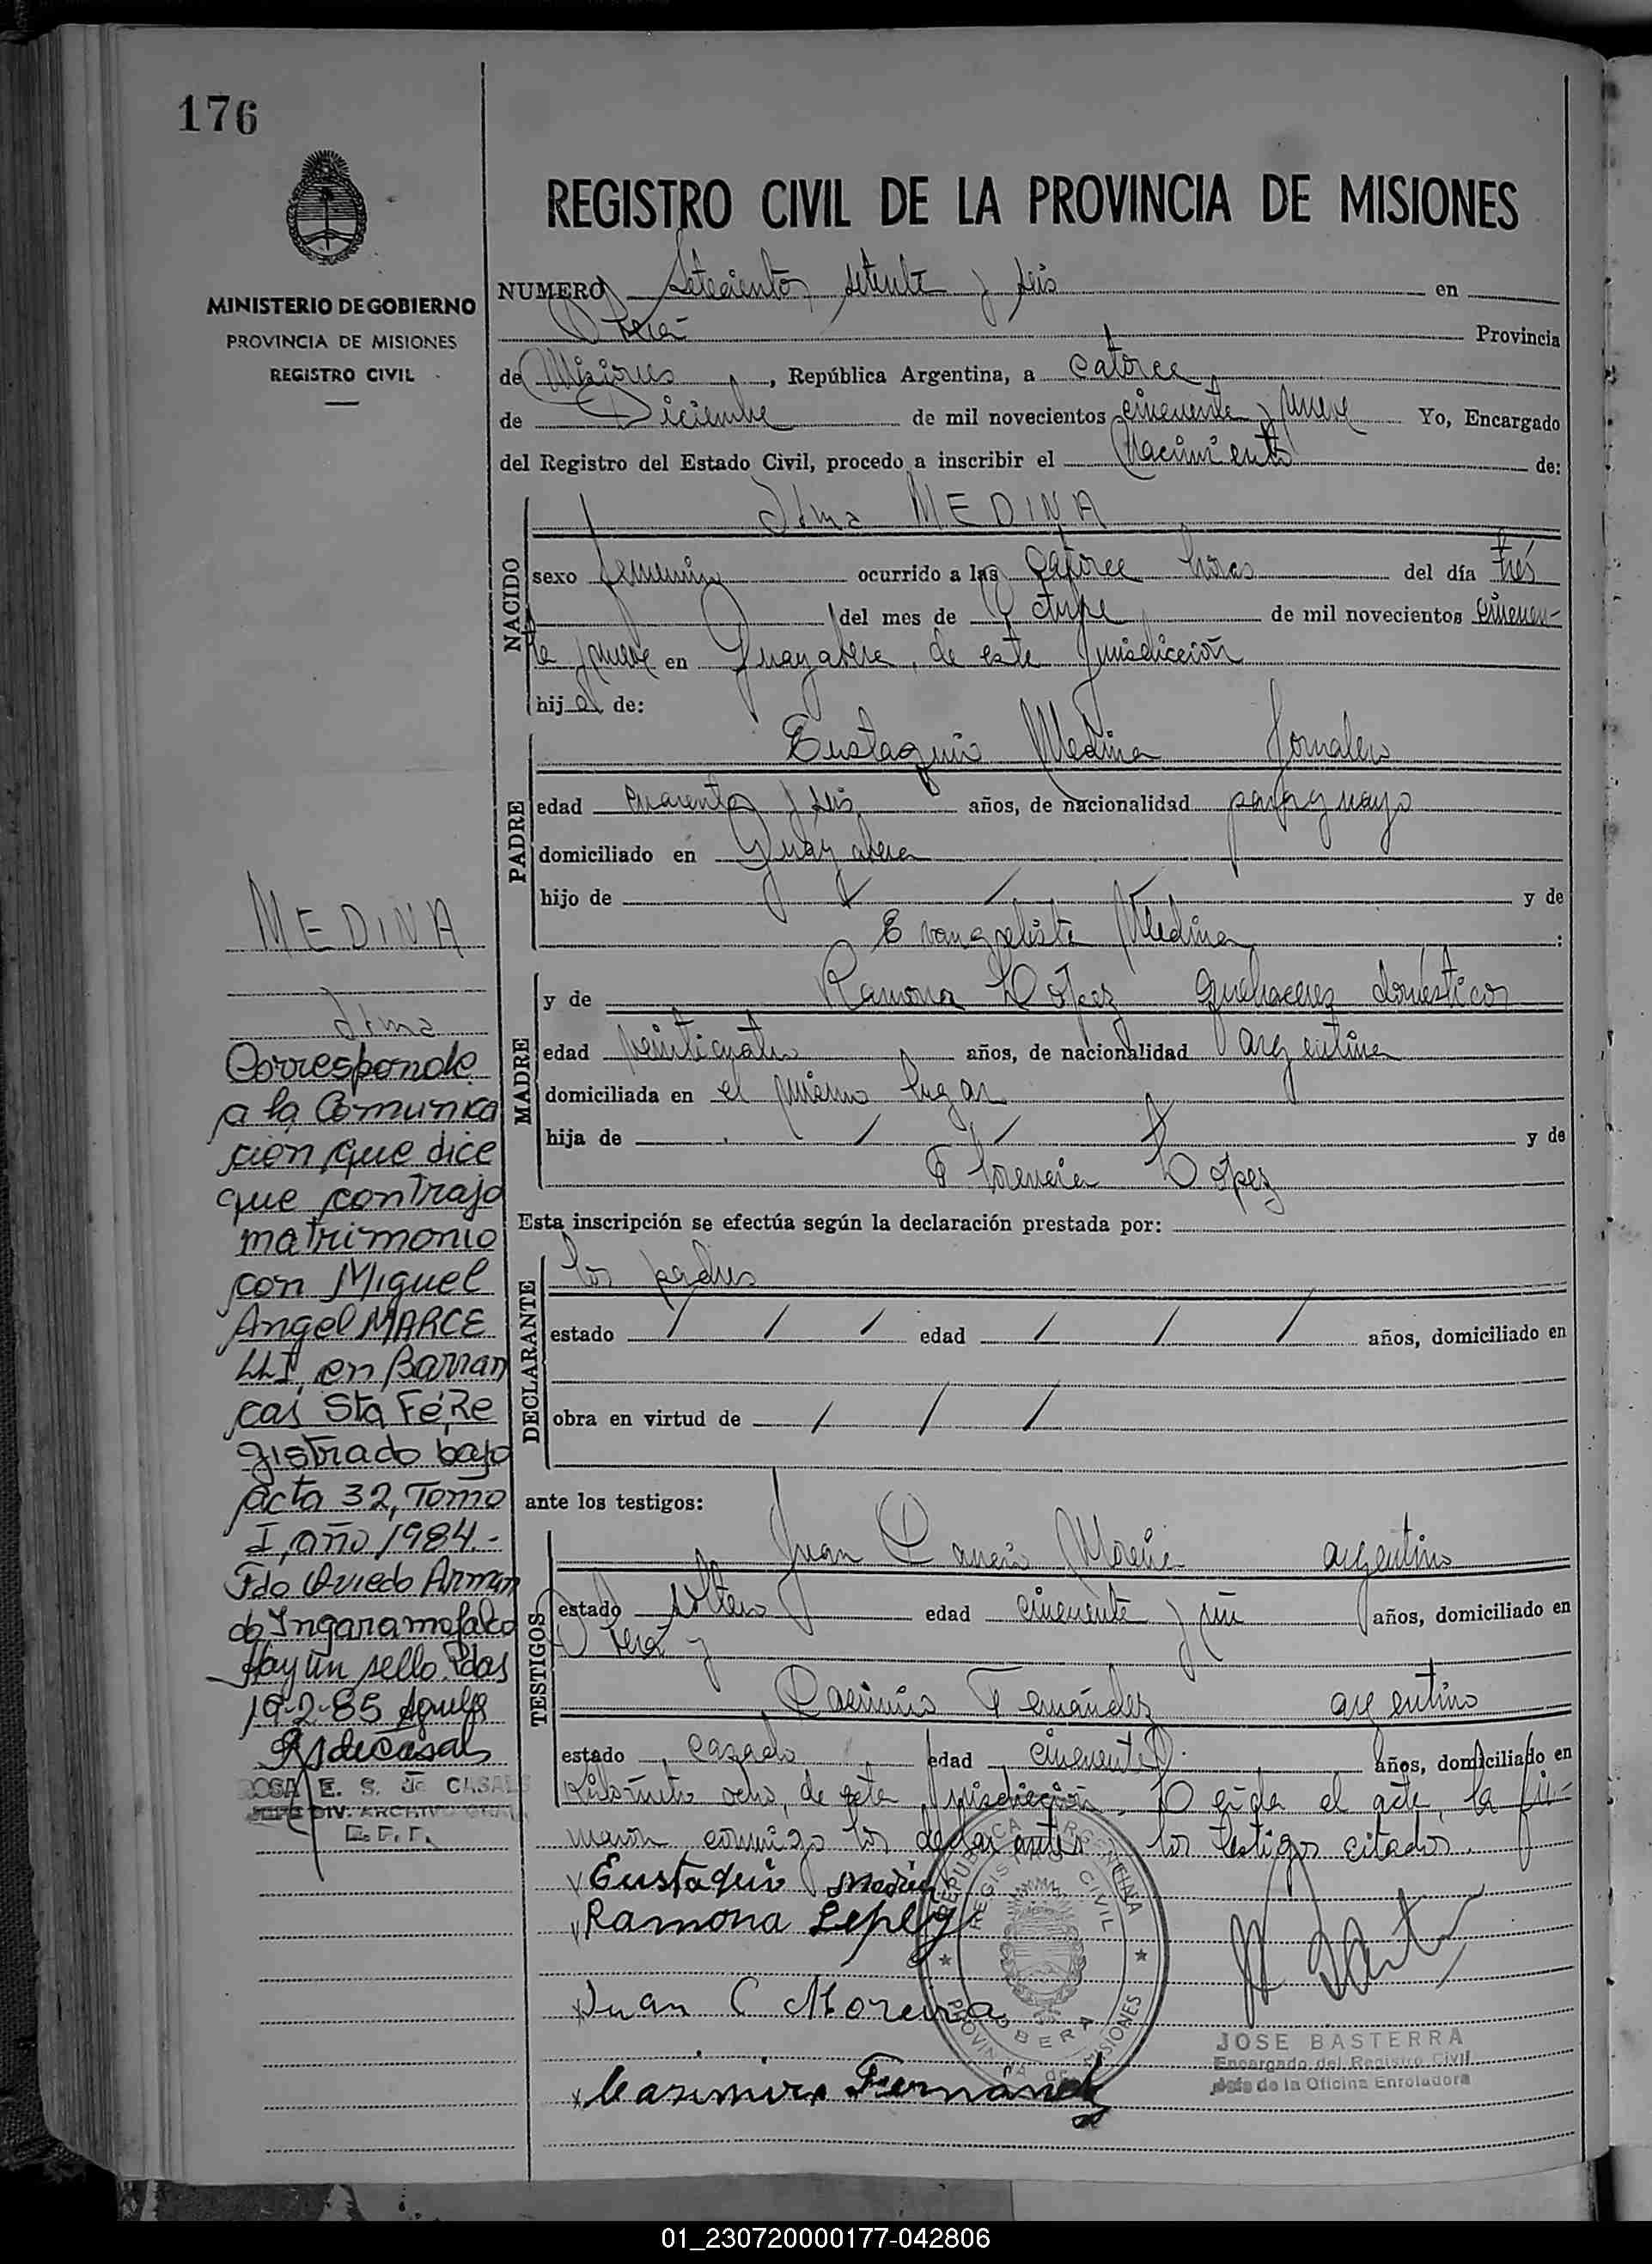 176
MINISTERIO DE GOBIERNO
PROVINCIA DE MISIONES
REGISTRO CIVIL
REGISTRO CIVIL DE LA PROVINCIA DE MISIONES
NUMERO Setecientos setenta y seis en
Oberá Provincia
de Misiones, República Argentina, a catorce
de Diciembre de mil novecientos cincuenta y nueve Yo, Encargado
del Registro del Estado Civil, procedo a inscribir el Nacimiento de:
NACIDO
MEDINA
sexo femenino ocurrido a las catorce horas del día tres
del mes de Octubre de mil novecientos cincuen-
ta y nueve en Guayabera, de esta jurisdicción
hija de:
PADRE
Eustaquio Medina Jornalero
edad cuarenta y seis años, de nacionalidad paraguayo
domiciliado en Guayabera
hijo de y de
Evangelista Medina :
MADRE
y de Ramona López quehaceres domésticos
edad veinticuatro años, de nacionalidad argentina
domiciliada en el mismo lugar
hija de y de
Florencia López
Esta inscripción se efectúa según la declaración prestada por:
DECLARANTE
los padres
estado edad años, domiciliado en
obra en virtud de
ante los testigos:
TESTIGOS
Juan argentino
estado soltero edad cincuenta y un años, domiciliado en
Oberá y
Casimiro Fernández argentino
estado casado edad cincuenta años, domiciliado en
kilómetro ocho, de esta jurisdicción. Leída el acta, la fir-
maron conmigo los declarantes y los testigos citados.
Eustaquio Medina
Ramona Lopez
Juan C Moreira
Casimiro Fernandez
REPUBLICA ARGENTINA
REGISTRO CIVIL
OBERA
PROVINCIA DE MISIONES
JOSE BASTERRA
Encargado del Registro Civil
Jefe de la Oficina Enroladora
MEDINA
Corresponde
a la Comunica
cion que dice
que contrajo
matrimonio
con Miguel
Angel MARCE
LLI en Barran
cas Sta Fé, Re
gistrado bajo
acta 32, Tomo
I, año 1984.-
Fdo Oviedo Arman
do Ingaramo
Hay un sello. Pdas
19-2-85
ROSA E. S. de CASALS
JEFE DIV. ARCHIVO GRAL
01_230720000177-042806